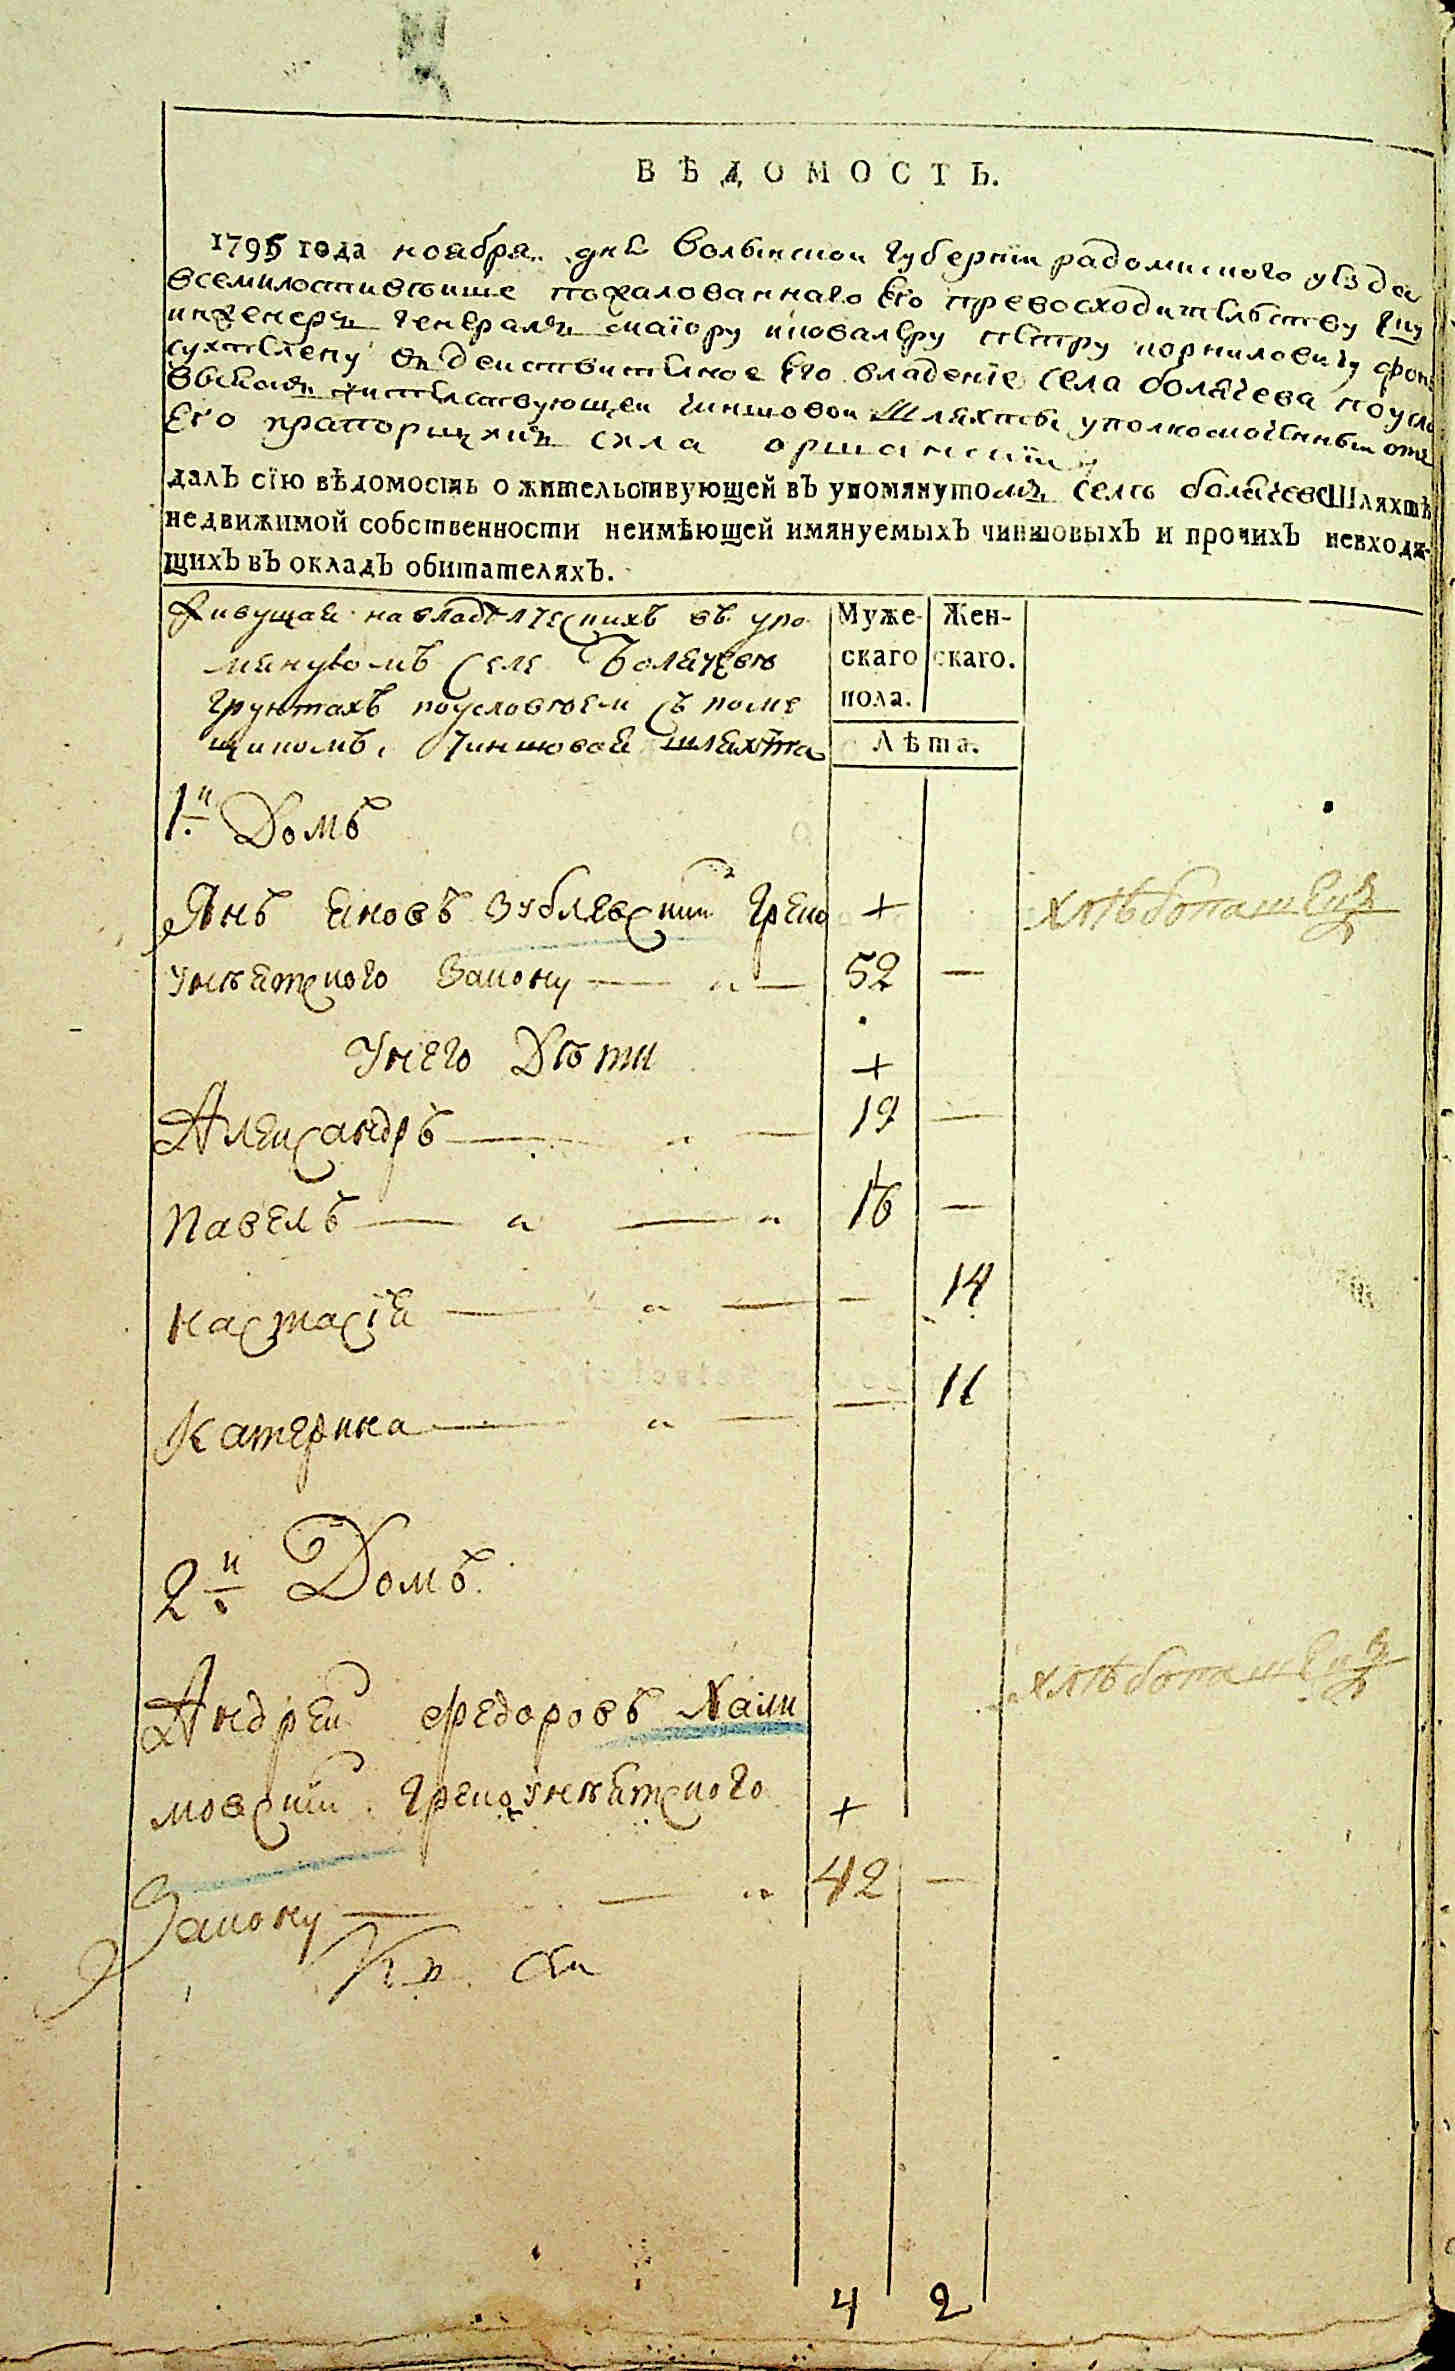 ВѢДОМОСТЬ.
1795 года ноября дня Волынской губерніи радомыского уезда
всемилостивѣише пожалованнаго Его превосходительству
инженеръ генералъ маіору и ковалеру петру корниловичу фонъ
сухтелену въ деиствителное Его владеніе села болячева
жителствующеи чиншовои Шляхты уполномоченныи отъ
Его прапорщикъ
далъ сію вѣдомость о жительствующей въ упомянутомъ селѣ болячевѣ Шляхтѣ
недвижимой собственности неимѣющей имянуемыхъ чиншовыхъ и прочихъ невходя-
щихъ въ окладъ обитателяхъ.
Живущая на владѣлческихъ въ упо
мянутомъ селе Болячевѣ
грунтахъ поусловіеми съ поме
щикомъ, Чиншовая шляхта
Муже-
скаго
пола.
Жен-
скаго.
Лѣта.
1й Домъ
Янъ яновъ Зублевский Греко + хлѣбопашецъ
унѣятского Закону — 52 —
Унего Дѣти +
Александръ — 19 —
Павелъ — 16 —
настасія — — 14
Катерина — — 11
2й Домъ.
Андрей федоровъ Кали хлѣбопашецъ
мовский Грекоунѣятского +
Закону — 42 —
4 2